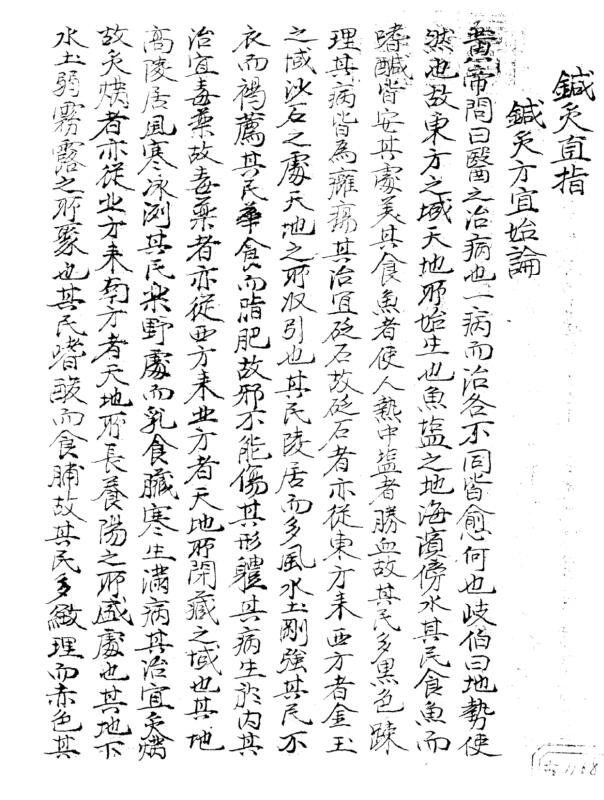 鍼灸直指
鍼灸方宜始論
黃帝問曰醫之治病也一病而治各不同皆愈何也岐伯曰地勢使
然也故東方之域天地所始生也魚塩之地海濱傍水其民食魚而
嗜鹹皆安其處美其食魚者使人熱中塩者勝血故其民多黑色踈
理其病皆為癰瘍其治宜砭石故砭石者亦從東方来西方者金玉
之域沙石之處天地之所收引也其民陵居而多風水土剛強其民不
衣而褐薦其民華食而脂肥故邪不能傷其形體其病生於内其
治宜毒藥故毒藥者亦從西方来北方者天地所閉藏之域也其地
高陵居風寒冰冽其民樂野處而乳食臓寒生滿病其治宜灸焫
故灸焫者亦從北方来南方者天地所長養陽之所盛處也其地下
水土弱霧露之所聚也其民嗜酸而食脯故其民多緻理而赤色其